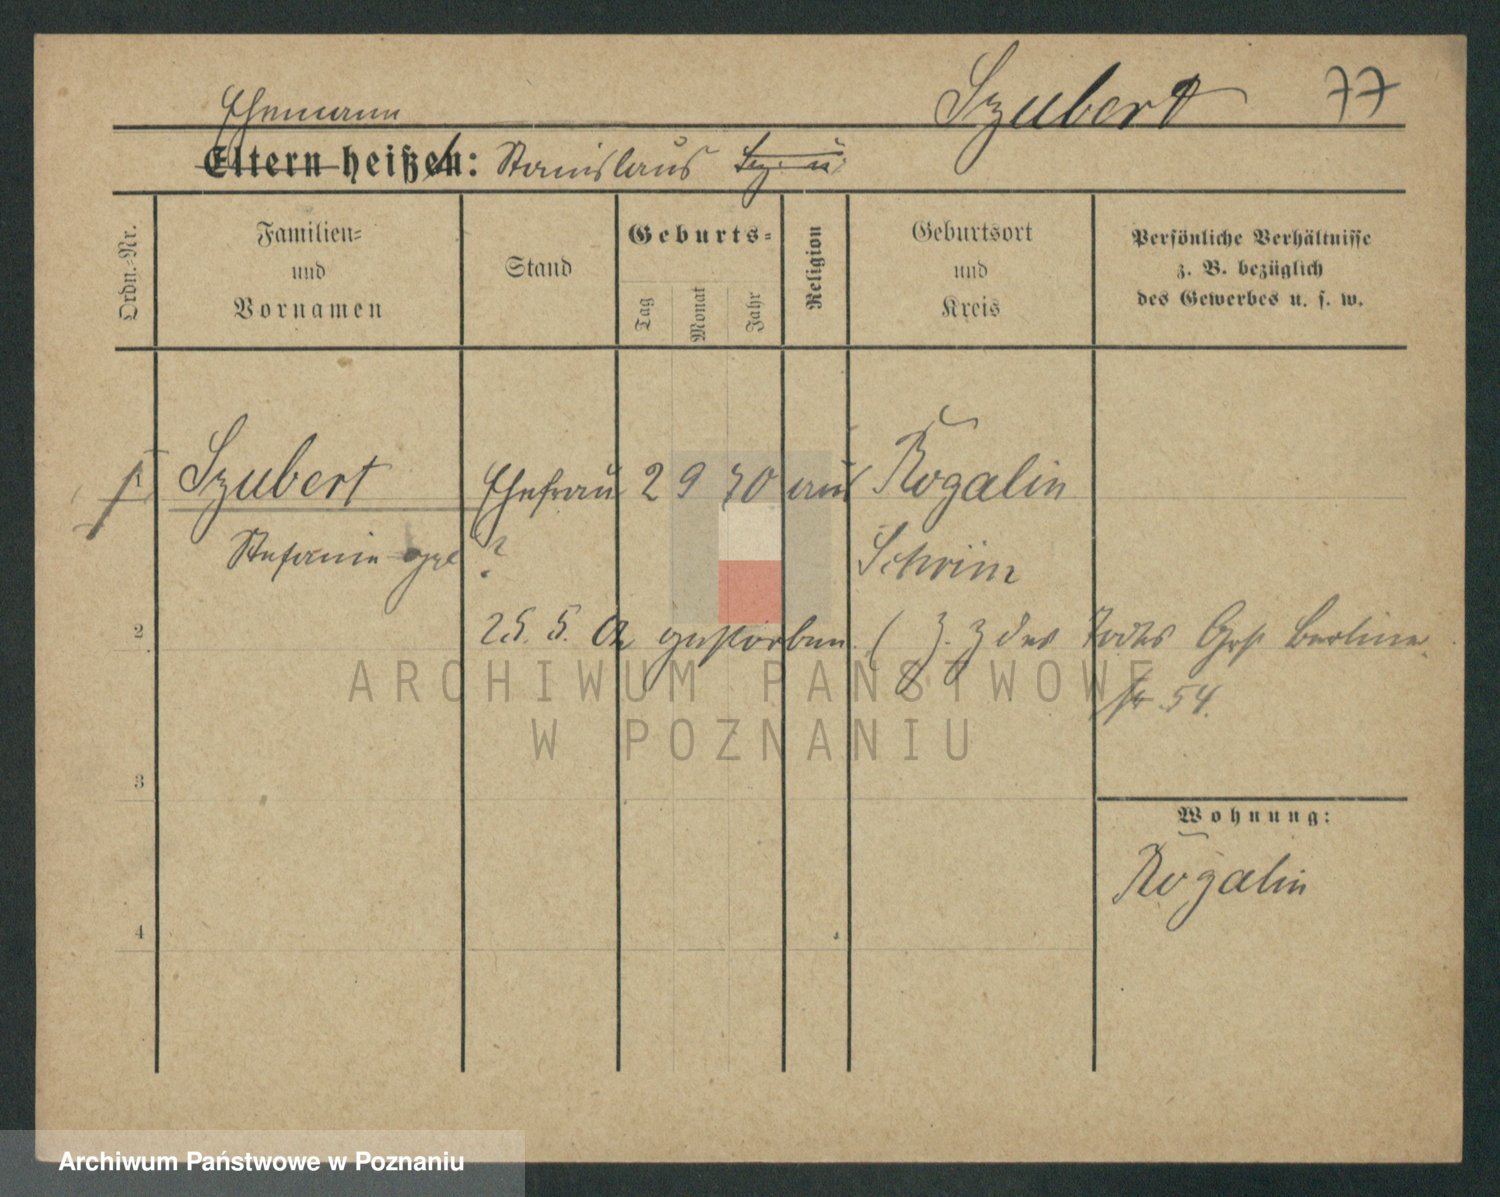 Ehemann Szubert 77
Eltern heißen: Stanislaus
Ordn.-Nr.
Familien-
und
Vornamen
Stand
Geburts-
Tag
Monat
Jahr
Religion
Geburtsort
und
Kreis
Persönliche Verhältnisse
z. B. bezüglich
des Gewerbes u. s. w.
1 Szubert Ehefrau 2 9 70 Rogalin
Stefanie ? Schrim
2 25. 5. gestorben ( z. Z des Todes Gr. Berliner
54.
3
Wohnung:
Rogalin
4
ARCHIWUM PAŃSTWOWE
W POZNANIU
Archiwum Państwowe w Poznaniu